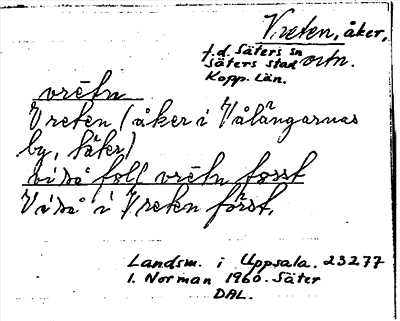 Vreten, åker,
f.d. Säters sn
Säters stad ortn.
Kopp. Län.
vrētn
Vreten (åker i Vålängarnas
by, Säter)
vrētn fosst
Vi så i Vreten först.
Landsm. i Uppsala. 23277
I. Norman 1960. Säter
DAL.